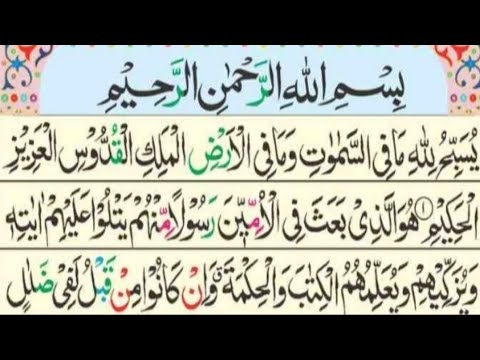 بِسْمِ اللهِ الرَّحْمٰنِ الرَّحِيْمِ
يُسَبِّحُ لِلّٰهِ مَا فِى السَّمٰوٰتِ وَمَا فِى الْاَرْضِ الْمَلِكِ الْقُدُّوْسِ الْعَزِيْزِ
الْحَكِيْمِ ۝۱ هُوَ الَّذِىْ بَعَثَ فِى الْاُمِّيّٖنَ رَسُوْلًا مِّنْهُمْ يَتْلُوْا عَلَيْهِمْ اٰيٰتِهٖ
وَيُزَكِّيْهِمْ وَيُعَلِّمُهُمُ الْكِتٰبَ وَالْحِكْمَةَ ۗ وَاِنْ كَانُوْا مِنْ قَبْلُ لَفِىْ ضَلٰلٍ